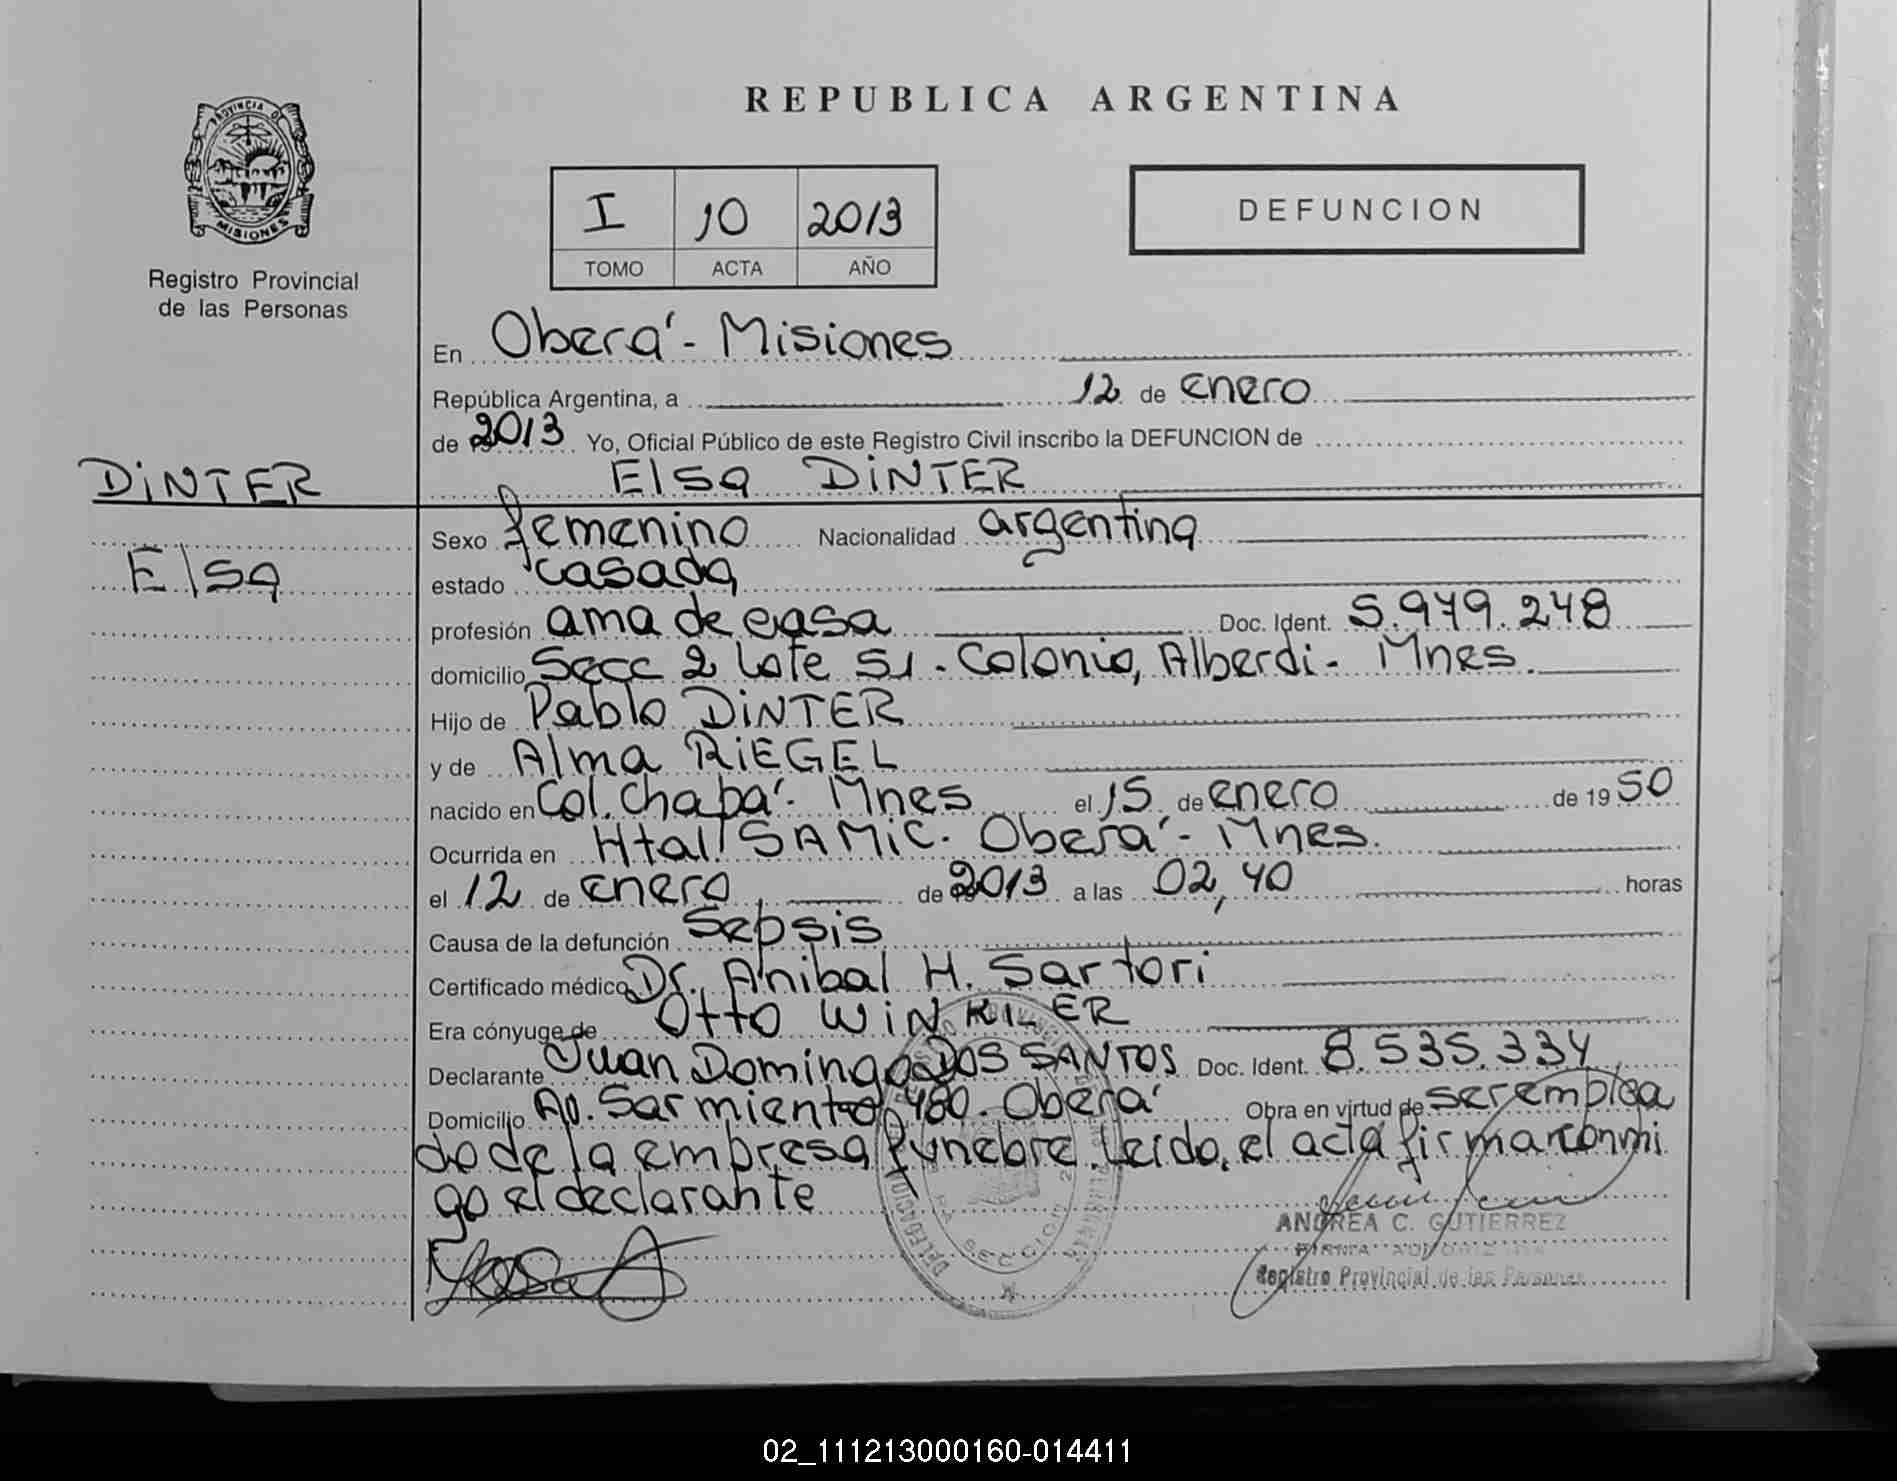 REPUBLICA ARGENTINA
PROVINCIA DE
MISIONES
Registro Provincial
de las Personas
I 10 2013
TOMO ACTA AÑO
DEFUNCION
En Oberá - Misiones
República Argentina, a 12 de enero
de 2013 Yo, Oficial Público de este Registro Civil inscribo la DEFUNCION de
DiNTER
Elsa DiNTER
Elsa
Sexo femenino Nacionalidad argentina
estado casada
profesión ama de casa Doc. Ident. 5.979.248
domicilio Secc 2 Lote 51 - Colonia, Alberdi - Mnes.
Hijo de Pablo DiNTER
y de Alma RiEGEL
nacido en Col. Chapá - Mnes el 15 de enero de 1950
Ocurrida en Htal SAMiC. Oberá - Mnes.
el 12 de enero de 2013 a las 02,40 horas
Causa de la defunción Sepsis
Certificado médico Dr. Anibal H. Sartori
Era cónyuge de Otto WiNKLER
Declarante Juan Domingo DOS SANTOS Doc. Ident. 8.535.334
Domicilio Av. Sarmiento 480. Oberá Obra en virtud de ser emplea
do de la empresa fúnebre. Leido, el acta firma conmi
go el declarante
ANDREA C. GUTIERREZ
Registro Provincial de las Personas
02_111213000160-014411